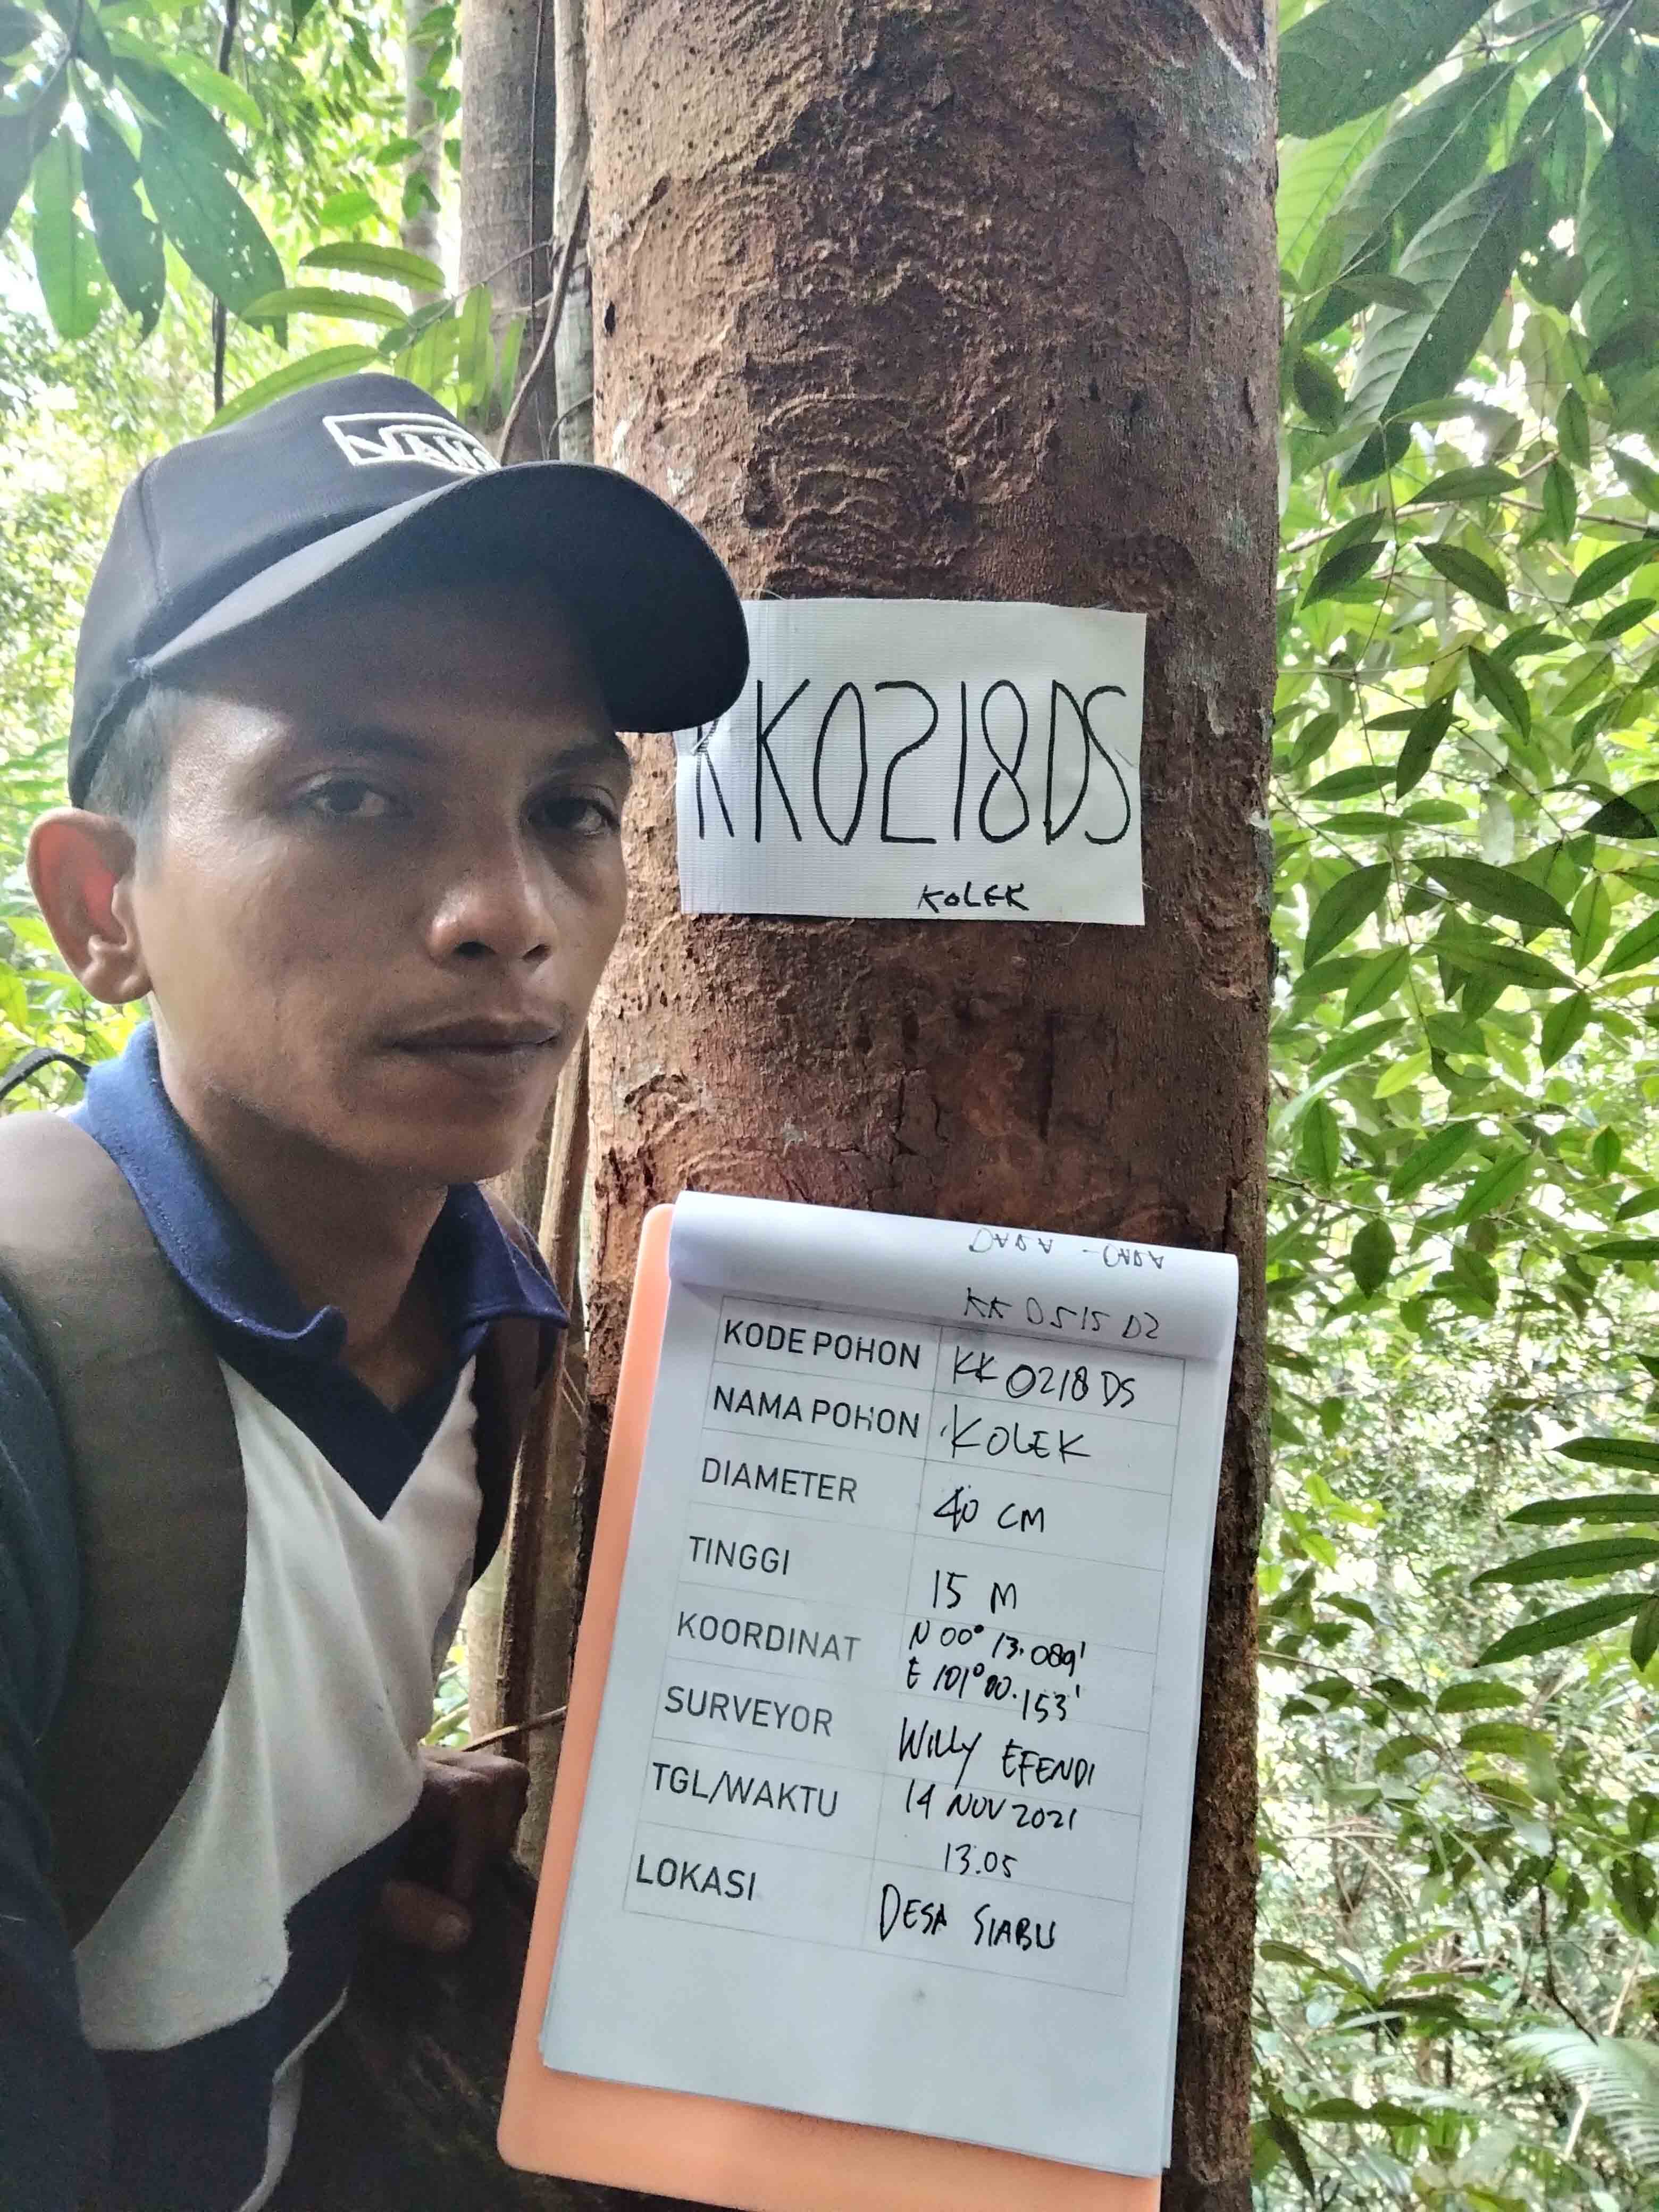 KK0218DS
KOLEK
KK 0515 D2
KODE POHON KK 0218 DS
NAMA POHON KOLEK
DIAMETER 40 CM
TINGGI 15 M
KOORDINAT N 00° 13.089'
E 101° 00.153'
SURVEYOR WILLY EFENDI
TGL/WAKTU 14 NOV 2021
13.05
LOKASI DESA SIABU